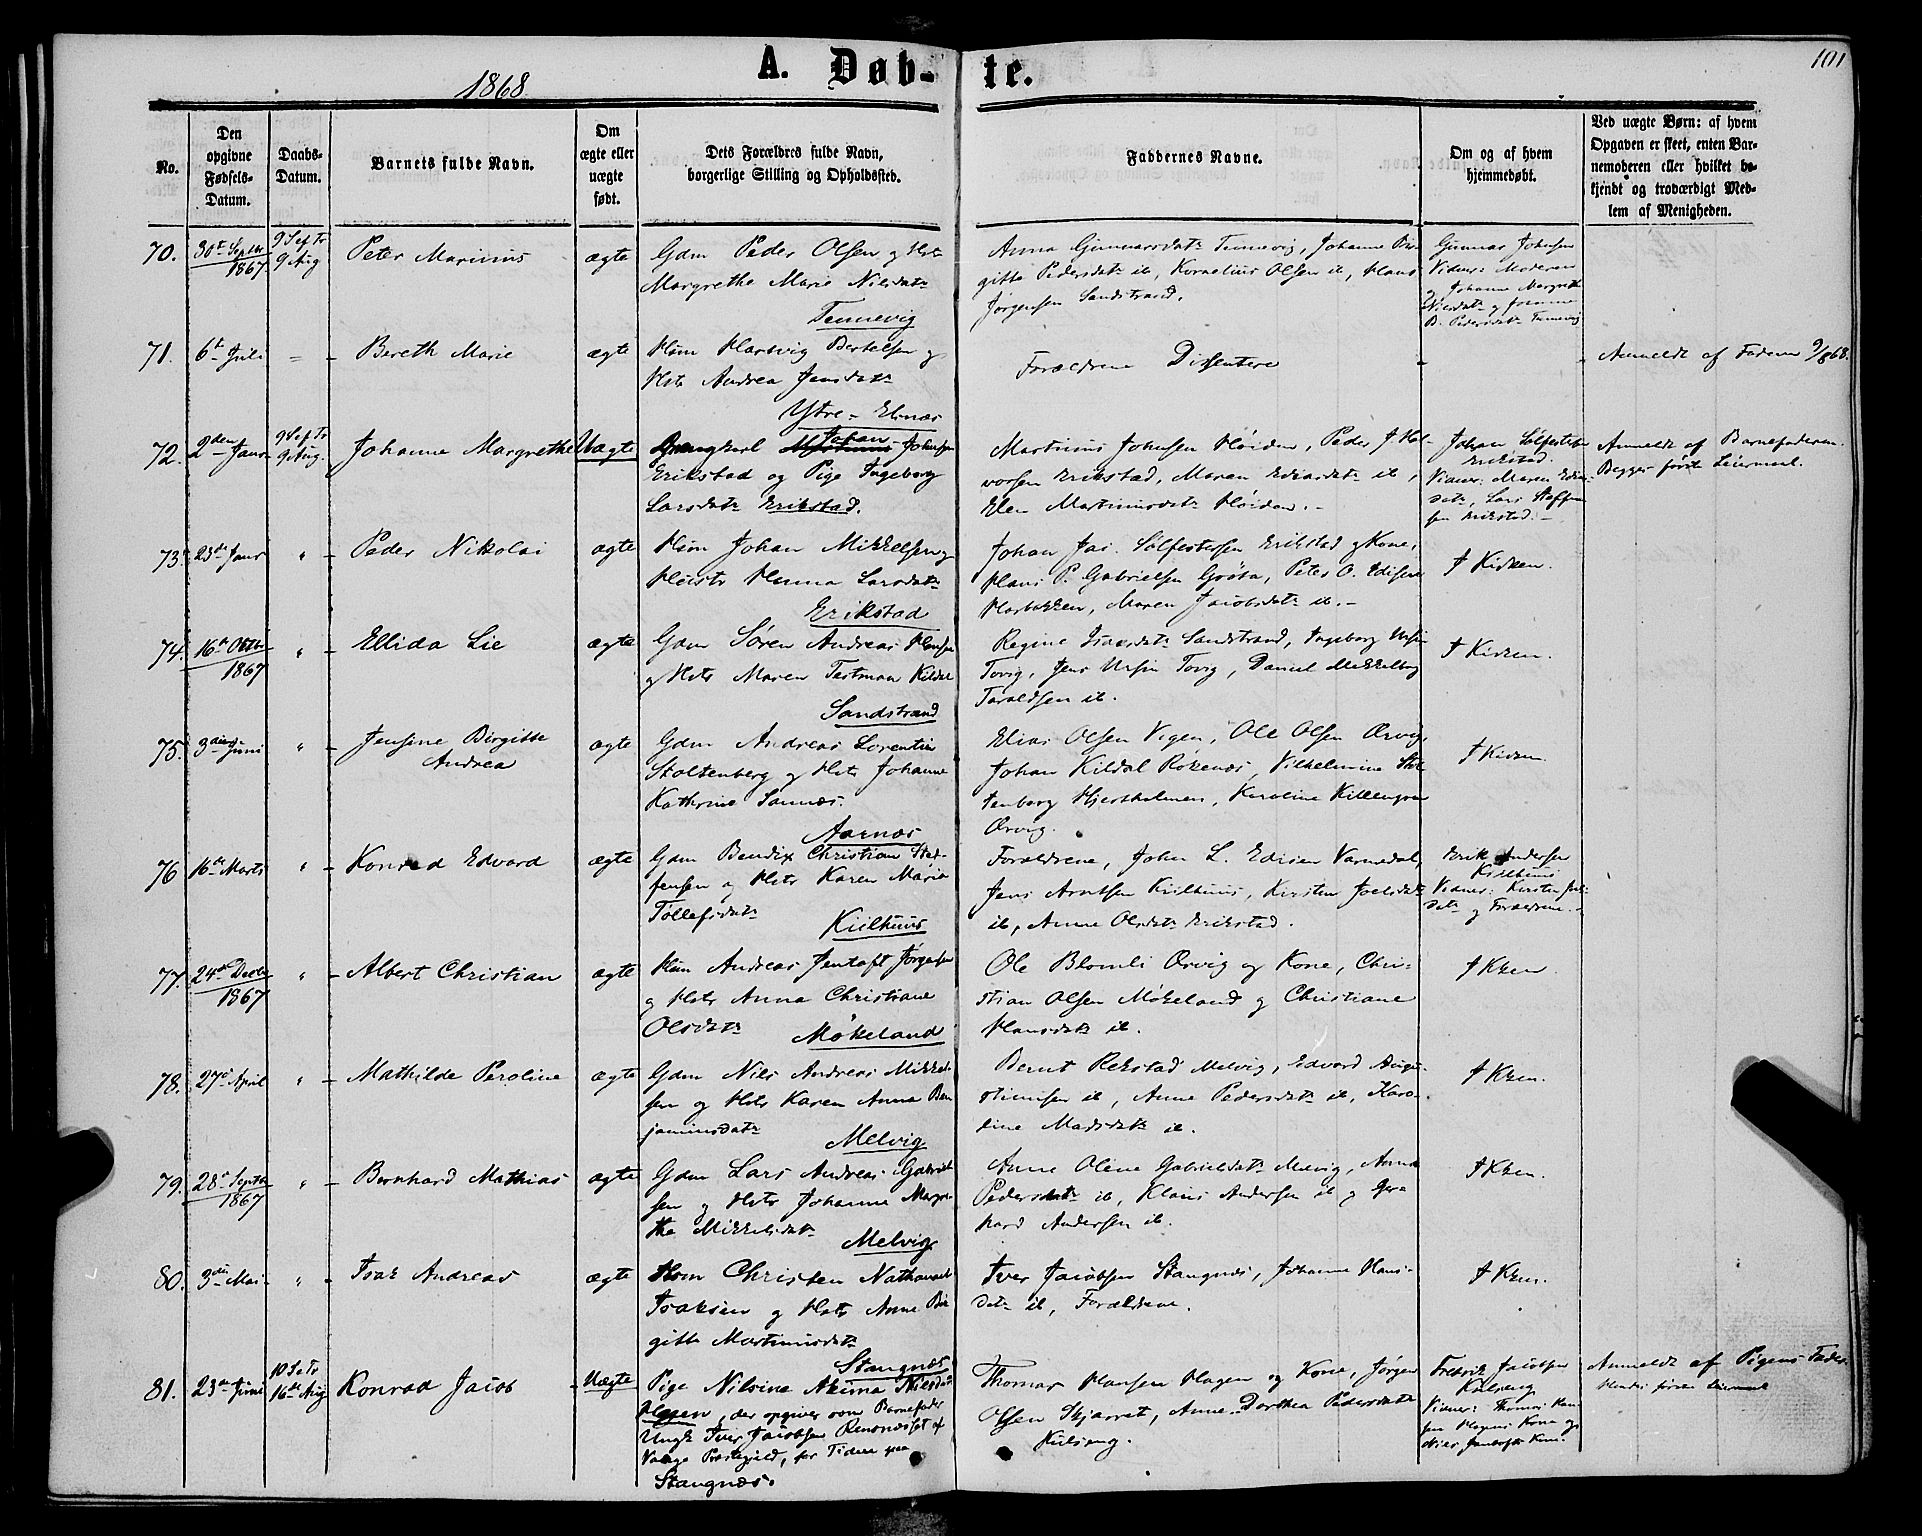 101
1868
A. Døb-
te.
No.
Den opgivne Fødsels-Datum.
Daabs-Datum.
Barnets fulde Navn.
Om ægte eller uægte født.
Dets Forældres fulde Navn,
borgerlige Stilling og Opholdssted.
Faddernes Navne.
Om og af hvem
hjemmedøbt.
Ved uægte Børn: af hvem
Opgaven er skeet, enten Bar-
nemoderen eller hvilket be-
kjendt og troværdigt Med-
lem af Menigheden.
70. 30t Septbr 1867 9 S ef Tr 9 Aug Peter Marinus ægte
Gdm Peder Olsen og Hst
Margrethe Marie Nilsdatr
Tennevig
Anna Gunnarsdatr Tennevig, Johanne Bir-
gitte Pedersdatr ib, Kornelius Olsen ib, Hans
Jørgensen Sandstrand.
Gunnar Johnsen
Vidner: Moderen
og Johanne Margrethe
Nilsdatr og Johanne
B. Pedersdatr Tennevig
71. 6t Juli = - Bereth Marie ægte
Hsm Hartvig Bertelsen og
Hstr Andrea Jensdatr
Ytre-Elnæs
Forældrene Dissentere - - Anmeldt af Faderen 9/8 68.
72. 2den Janr 9 S ef Tr 9 Aug. Johanne Margrethe Uægte
Johan Johnsen
Erikstad og Pige Ingeborg
Larsdatr Erikstad.
Martinus Johnsen Høiden, Peder J Hal-
vorsen Erikstad, Maren Edisdatr ib,
Elen Martinusdatr Høiden.-
Johan Sølfestersen
Erikstad.
Vidner: Maren Edis-
datr, Lars Steffen-
sen Erikstad.-
Anmeldt af Barnefaderen.
Begges første Leiermaal.
73. 23de Janr " - Peder Nikolai ægte
Hsm Johan Mikkelsen og
Hustr Hanna Larsdatr
Erikstad
Johan Jac. Sølfestersen Erikstad og Kone,
Hans P. Gabrielsen Grøsa, Peter O. Edisen
Harbakken, Maren Jacobsdatr ib.-
I Kirken.
74. 16de Octbr 1867 " - Ellida Lie ægte
Gdm Søren Andreas Hansen
og Hstr Maren Testman Kildal
Sandstrand
Regine Isaksdatr Sandstrand, Ingeborg Ursin
Tovig, Jens Ursin Tovig, Daniel Mikkelborg
Taraldsen ib.
I Kirken.
75. 3die Juni " - Jensine Birgitte
Andrea ægte
Gdm Andreas Lorentin
Stoltenberg og Hstr Johanne
Kathrine Sannæs.
Aarnæs
Elias Olsen Vigen, Ole Olsen Ørvig,
Johan Kildal Røkenæs, Vilhelmine Stol-
tenberg Hjerstholmen, Karoline Killengren
Ørvig.
I Kirken
76 16de Marts " - Konrad Edvard ægte
Gdm Bendix Christian Stef-
fensen og Hstr Karen Marie
Tollefsdatr
Kiilhuus
Forældrene, John L. Edisen Varmedal,
Jens Arntsen Kiilhuus, Kirsten Joelsdatr
ib, Anne Olsdatr Erikstad.
Erik Andersen
Kiilhuus
Vidner: Kirsten Joels-
datr og Forældrene.-
77. 24de Decbr 1867 " - Albert Christian ægte
Hsm Andreas Jentoft Jørgensen
og Hstr Anna Christiane
Olsdatr Møkeland
Ole Blomli Ørvig og Kone, Chri-
stian Olsen Møkeland og Christiane
Hansdatr ib.
I Krken.
78. 27de April " - Mathilde Peroline ægte
Gdm Nils Andreas Mikkel-
sen og Hstr Karen Anna Ben-
jaminsdatr
Melvig
Bernt Rekstad Melvig, Edvard Augu-
stinusen ib, Anne Pedersdatr ib, Karo-
line Madsdatr ib.
I Krken.
79. 28de Septbr 1867 " - Bernhard Mathias ægte
Gdm Lars Andreas Gabriel-
sen og Hstr Johanne Margre-
the Mikkelsdatr
Melvig
Anne Oline Gabrielsdatr Melvig, Anna
Pedersdatr ib, Klaus Andersen ib og Ger-
hard Andersen ib.
I Krken.
80. 3die Mai " - Isak Andreas ægte
Hsm Christen Nathanael
Isaksen og Hstr Anne Bir-
gitte Martinusdatr
Stangnæs
Iver Jacobsen Stangnæs, Johanne Hans-
datr ib, Forældrene.
I Krken.
81. 23de Juni 10 S e Tr 16de Aug Konrad Jacob Uægte
Pige Nilsine Nilsdatr
Hagen, der opgiver som Barnefader
Ungk Iver Jacobsen Renonæsset af
Vaage Præstegjeld, for Tiden paa
Stangnæs.
Thomas Hansen Hagen og Kone, Jørgen
Olsen Skjærret, Anne Dorthea Pedersdatr
Kulseng.
Fredrik Jacobsen
Kulseng
Vidner: Thomas Han-
sen Hagens Kone og
Nils Jentofts Kone.
Anmeldt af Pigens Fader.
Hendes første Leiermaal